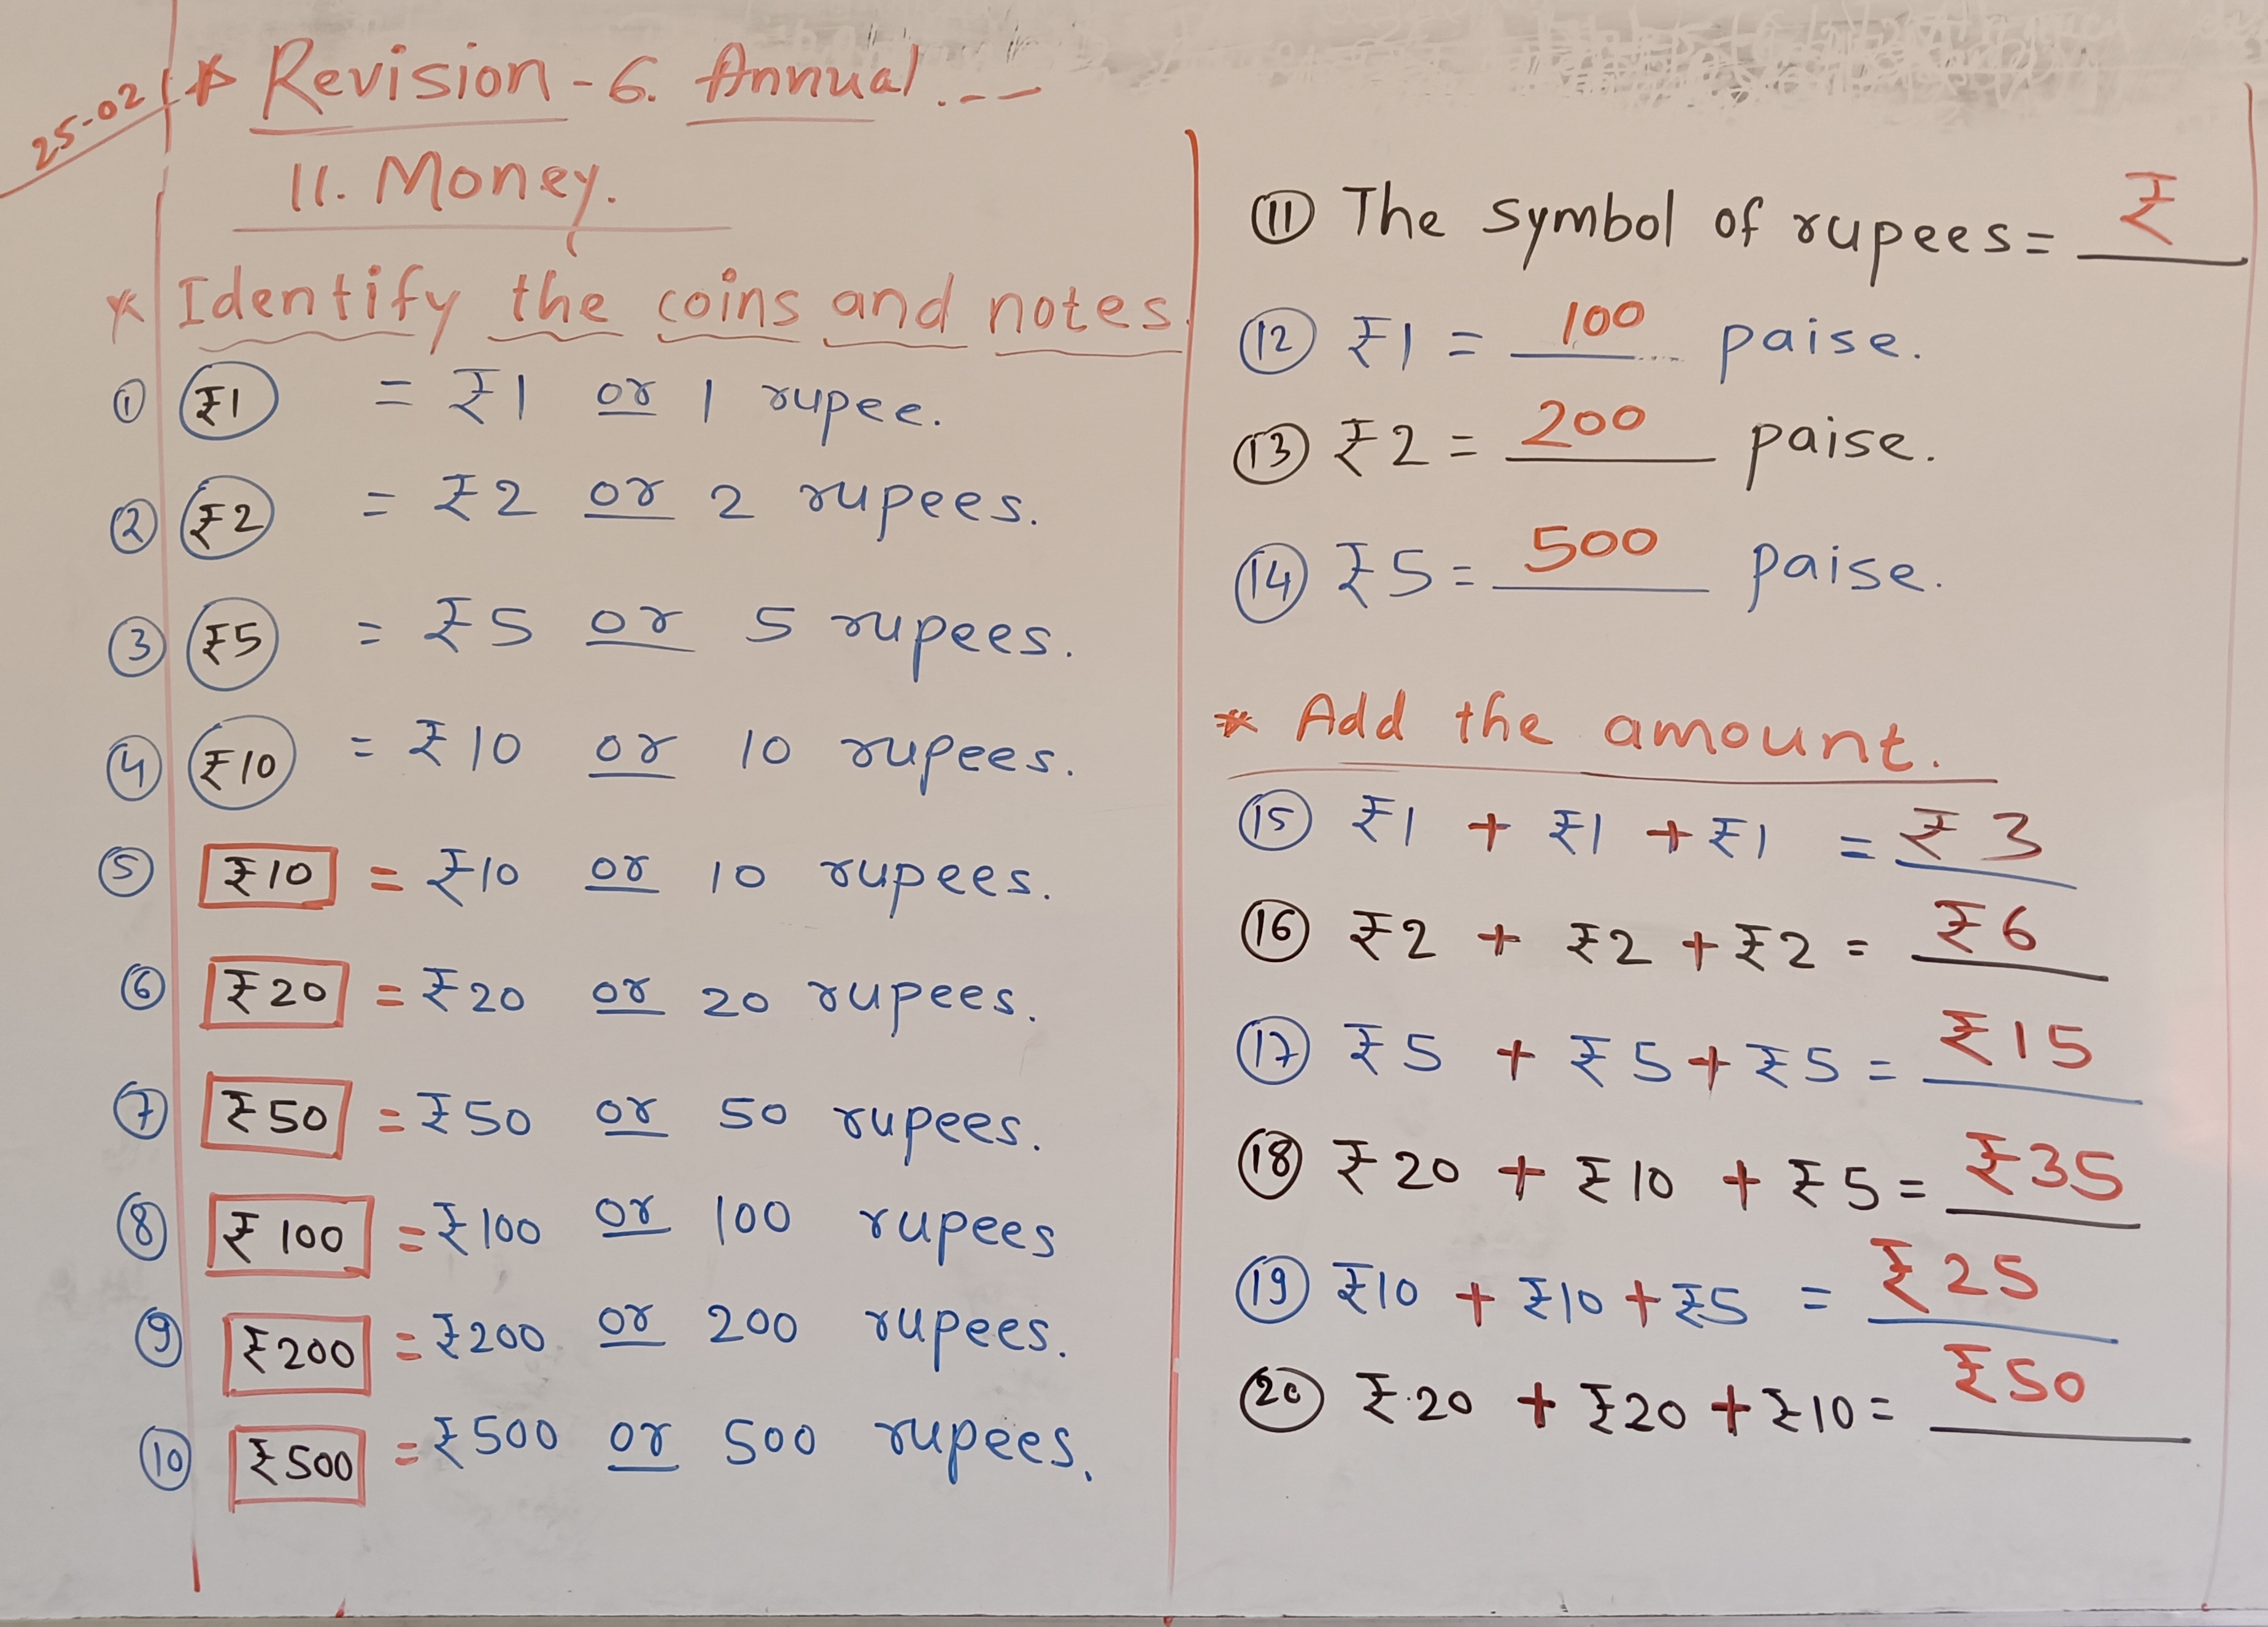 25-02
* Revision - 6. Annual...
11. Money.
* Identify the coins and notes.
① ₹1 = ₹1 or 1 rupee.
② ₹2 = ₹2 or 2 rupees.
③ ₹5 = ₹5 or 5 rupees.
④ ₹10 = ₹10 or 10 rupees.
⑤ ₹10 = ₹10 or 10 rupees.
⑥ ₹20 = ₹20 or 20 rupees.
⑦ ₹50 = ₹50 or 50 rupees.
⑧ ₹100 = ₹100 or 100 rupees
⑨ ₹200 = ₹200 or 200 rupees.
⑩ ₹500 = ₹500 or 500 rupees.
⑪ The symbol of rupees = ₹
⑫ ₹1 = 100 paise.
⑬ ₹2 = 200 paise.
⑭ ₹5 = 500 paise.
* Add the amount.
⑮ ₹1 + ₹1 + ₹1 = ₹3
⑯ ₹2 + ₹2 + ₹2 = ₹6
⑰ ₹5 + ₹5 + ₹5 = ₹15
⑱ ₹20 + ₹10 + ₹5 = ₹35
⑲ ₹10 + ₹10 + ₹5 = ₹25
⑳ ₹20 + ₹20 + ₹10 = ₹50